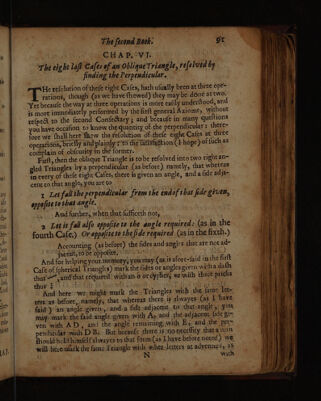 The second Book. 91
CHAP. VI.
The eight last Cases of an Oblique Triangle, resolved by
finding the Perpendicular.
THe resolution of these eight Cases, hath usually been at three ope-
rations, though (as we have shewed) they may be done at two.
Yet because the way at three operations is more easily understood, and
is more immediately performed by the first general Axioms, without
respect to the second Consectary; and because in many questions
you have occasion to know the quantity of the perpendicular: there-
fore we shall here shew the resolution of these eight Cases at three
operations, briefly and plainly; to the satisfaction (I hope) of such as
complain of obscurity in the former.
First, then the oblique Triangle is to be resolved into two right an-
gled Triangles by a perpendicular (as before) namely, that whereas
in every of these eight Cases, there is given an angle, and a side adja-
cent to that angle, you are to
1 Let fall the perpendicular from the end of that side given,
opposite to that angle.
And further, when that sufficeth not,
2 Let it fall also opposite to the angle required: (as in the
fourth Case.) Or opposite to the side required (as in the sixth.)
Accounting (as before) the sides and angles that are not ad-
jacent, to be opposite.
And for helping your memory, you may (as is afore-said in the first
Case of spherical Triangles) mark the sides or angles given with a dash
thus and that required with an o or cypher, or with three pricks
thus
And here we might mark the Triangles with the same let-
ters as before, namely, that whereas there is alwayes (as I have
said) an angle given, and a side adjacent to that angle, you
may mark the said angle given with A, and the adjacent side gi-
ven with AD, and the angle remaining with E, and the per-
pendicular with DB. But because there is no necessity that a man
should bind himself alwayes to that form (as I have before noted) we
will here mark the same Triangle with other letters at adventure, as
N with